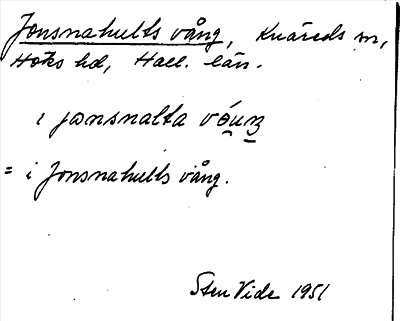 Jonsnahults vång, Knäreds sn,
Höks hd, Hall. län.
i jonsnalta
= i Jonsnahults vång.
Sten Vide 1951